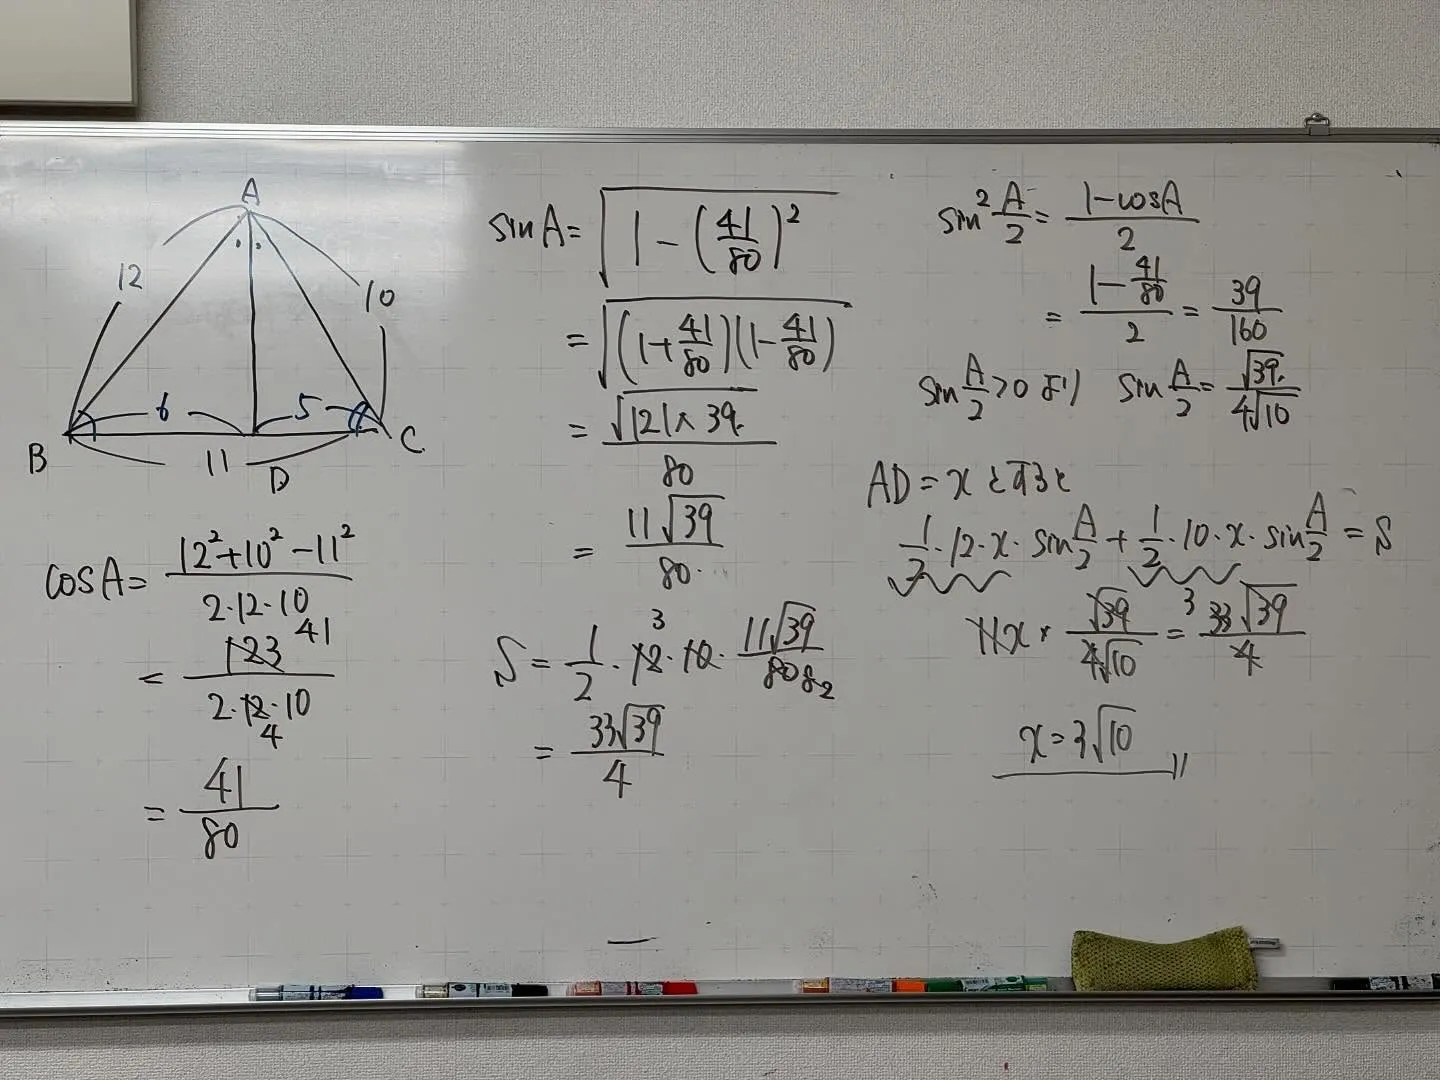 A
12
10
6
5
B
11
D
C
cosA = (12² + 10² - 11²) / (2·12·10)
= 123 41 / (2·12·10) 4
= 41/80
sinA = √(1 - (41/80)²)
= √((1 + 41/80)(1 - 41/80))
= √(121 × 39) / 80
= 11√39 / 80
S = 1/2 · 12 3 · 10 · 11√39 / 80 8 2
= 33√39 / 4
sin² A/2 = (1 - cosA) / 2
= (1 - 41/80) / 2 = 39/160
sin A/2 > 0 より sin A/2 = √39 / 4√10
AD = x とすると
1/2 · 12 · x · sin A/2 + 1/2 · 10 · x · sin A/2 = S
11x × √39 / 4√10 = 3 33√39 / 4
x = 3√10